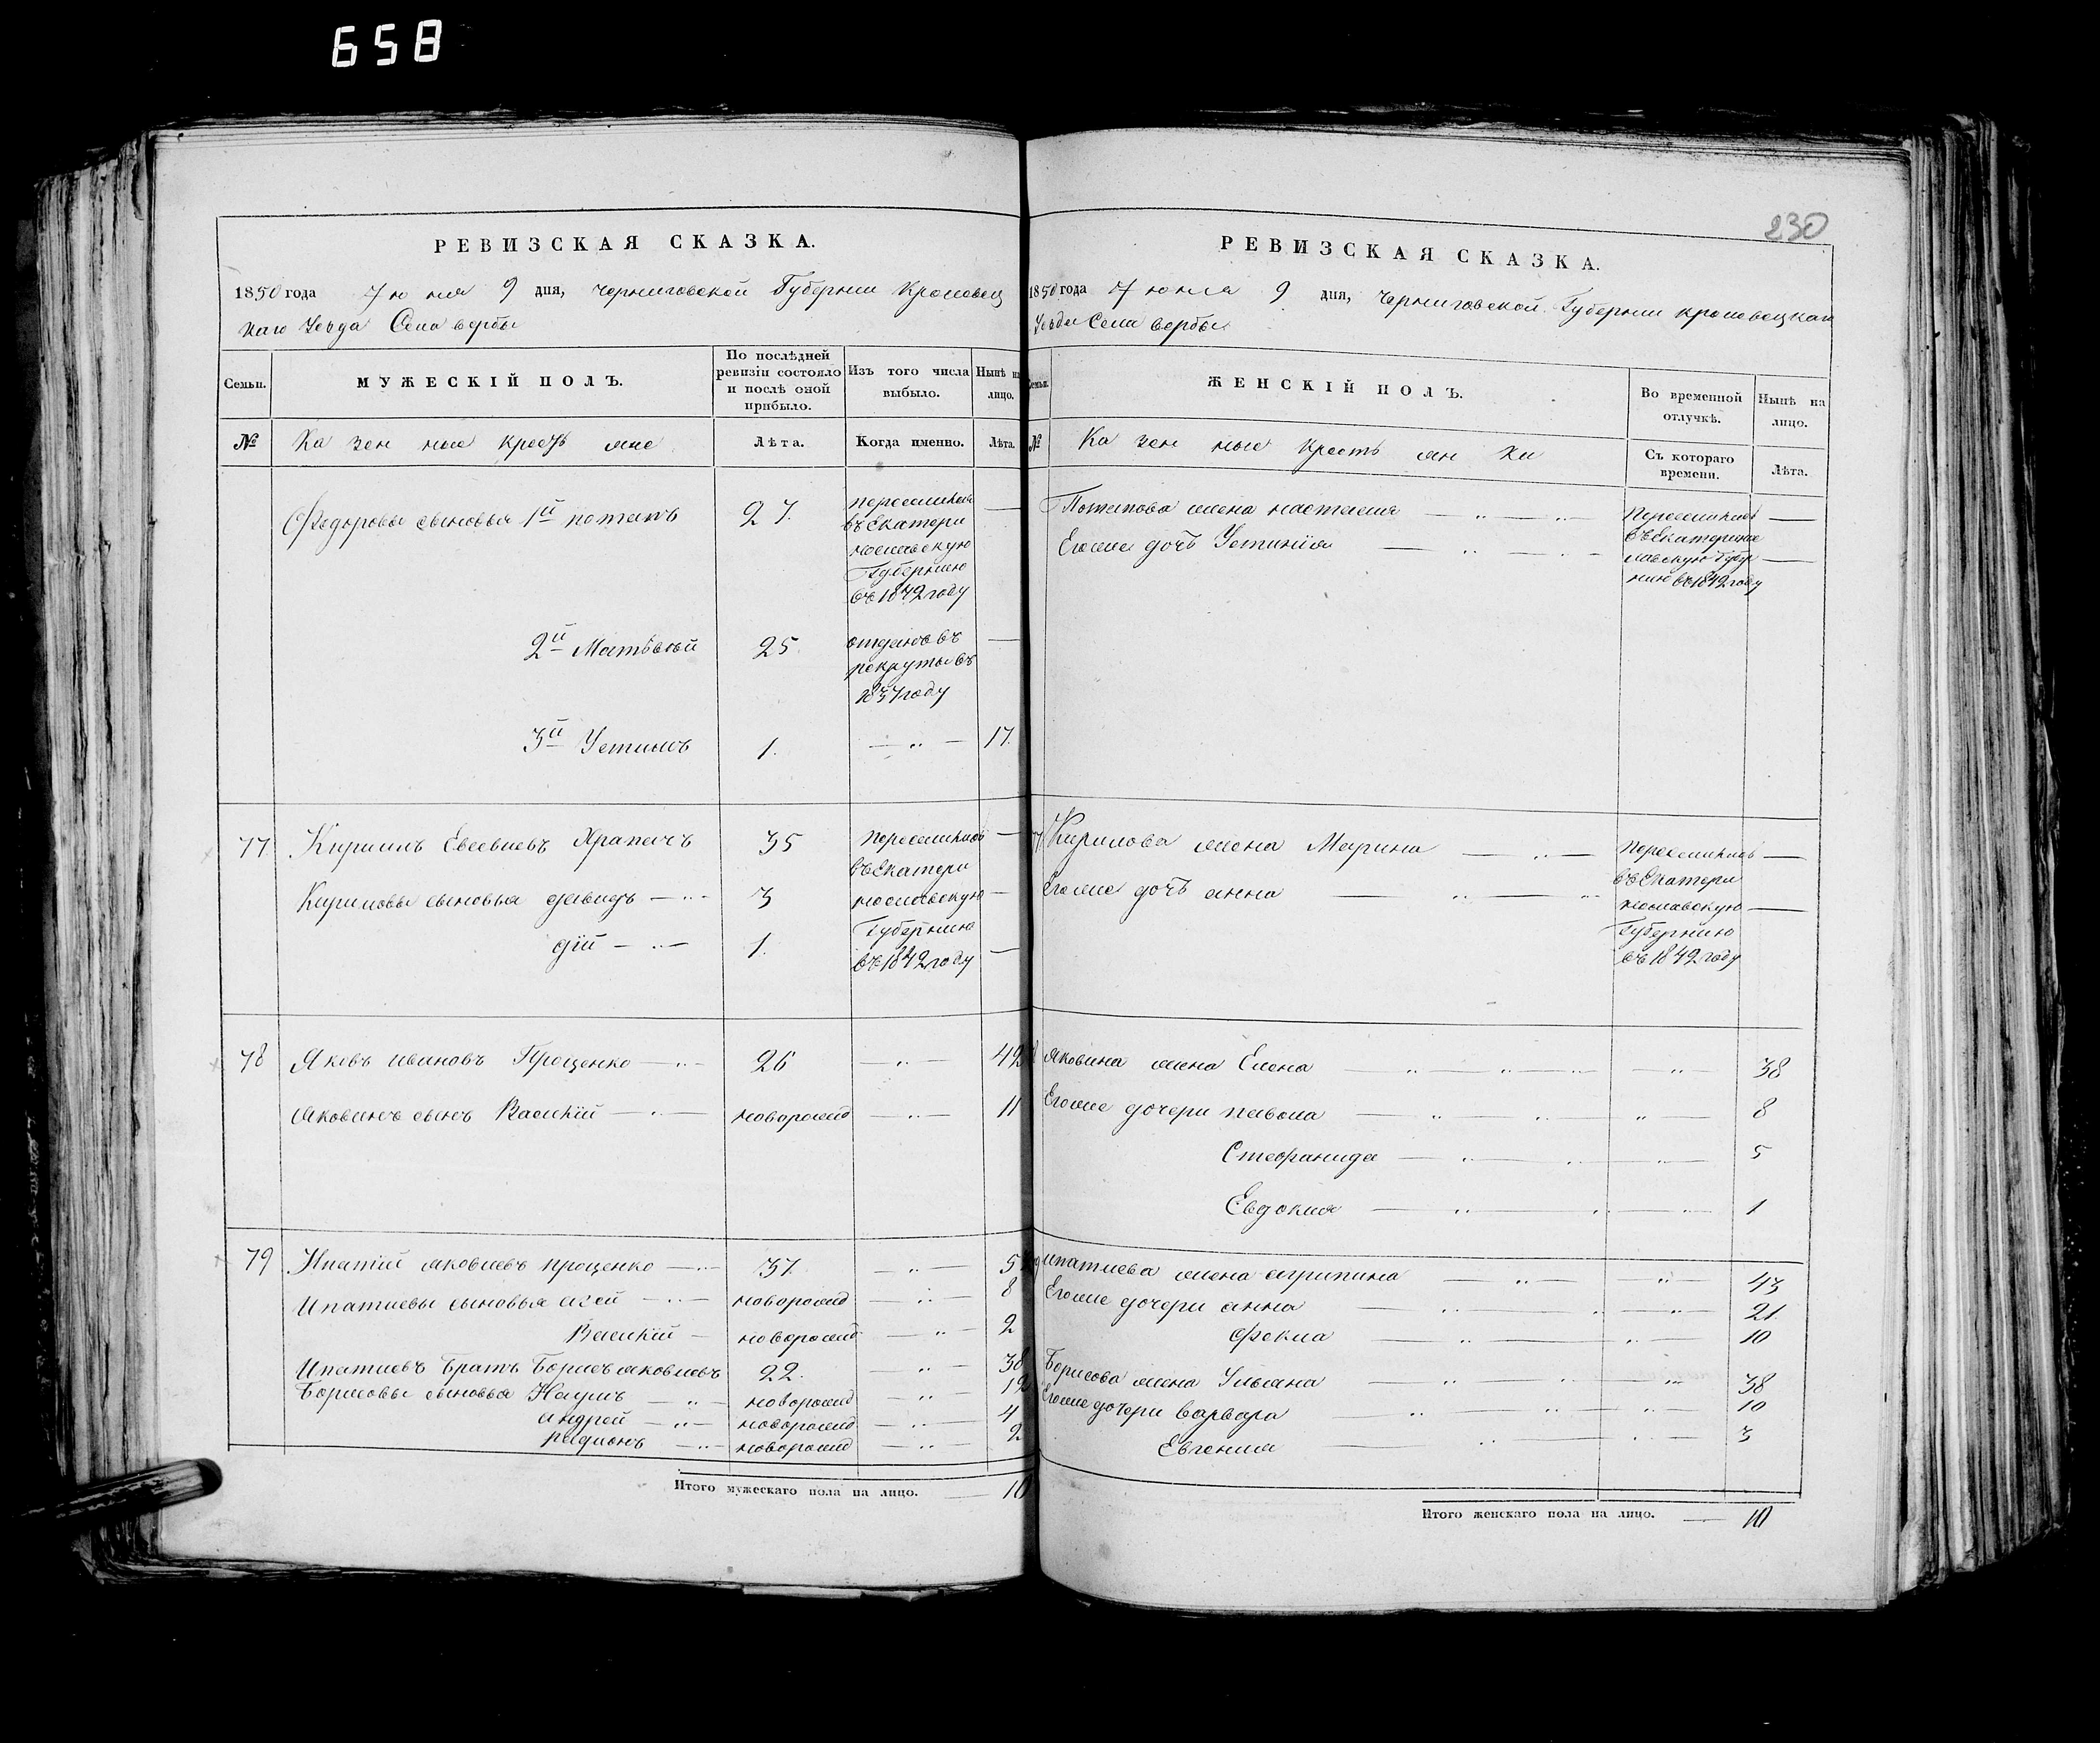 658
230
РЕВИЗСКАЯ СКАЗКА.
1850 года Июня 9 дня, Черниговской Губернии Кролевец
каго Уезда Села Вербы
Семьи.
МУЖЕСКІЙ ПОЛЪ.
По послѣдней ревизіи состояло и послѣ оной прибыло.
Изъ того числа выбыло.
Нынѣ на лицо.
№
Казенные крестьяне
Лѣта.
Когда именно.
Лѣта.
Федоровы сыновья 1й Потапъ 27. переселился
въ Екатери
нославскую
Губернію
въ 1842 году
2й Матвей 25. отданъ въ
рекруты въ
1837 году
3й Устимъ 1. 17.
77 Кирилъ Евсеевъ Храпачъ 35 переселился
въ Екатери
Кириловы сыновья Давидъ 3 нославскую
Губернію
1. въ 1842 году
78 Яковъ Ивановъ Проценко 26 42
Яковинъ сынъ Василій новорожд 11
79 Ипатій Яковлевъ Проценко 37.
Ипатиевы сыновья новорожд 8
Василій новорожд 2
Ипатиевъ Братъ Борисъ Яковлевъ 22. 38
Борисовы сыновья Наумъ новорожд 12
Андрей новорожд 4
Радионъ новорожд 2
Итого мужескаго пола на лицо. 10
РЕВИЗСКАЯ СКАЗКА.
1850 года Июня 9 дня, Черниговской Губернии Кролевецкаго
Уезда Села Вербы
Семьи.
ЖЕНСКІЙ ПОЛЪ.
Во временной отлучкѣ.
Нынѣ на лицо.
№
Казенные крестьянки
Съ котораго времени.
Лѣта.
Потапова жена Настасия Переселились
Егоже дочь Устинія въ Екатерино
славскую Губер
нию въ 1842 году
Кирилова жена Марина переселились
въ Екатери
Егоже дочь Анна нославскую
Губернию
въ 1842 году
Яковина жена Елена 38
Егоже дочери Павла 8
Стефанида 5
Евдокия 1
Ипатиева жена Агрипина 43
Егоже дочери Анна 21.
Фекла 10
Борисова жена Ульяна 38
Егоже дочери Варвара 10
Евгения 3
Итого женскаго пола на лицо. 10